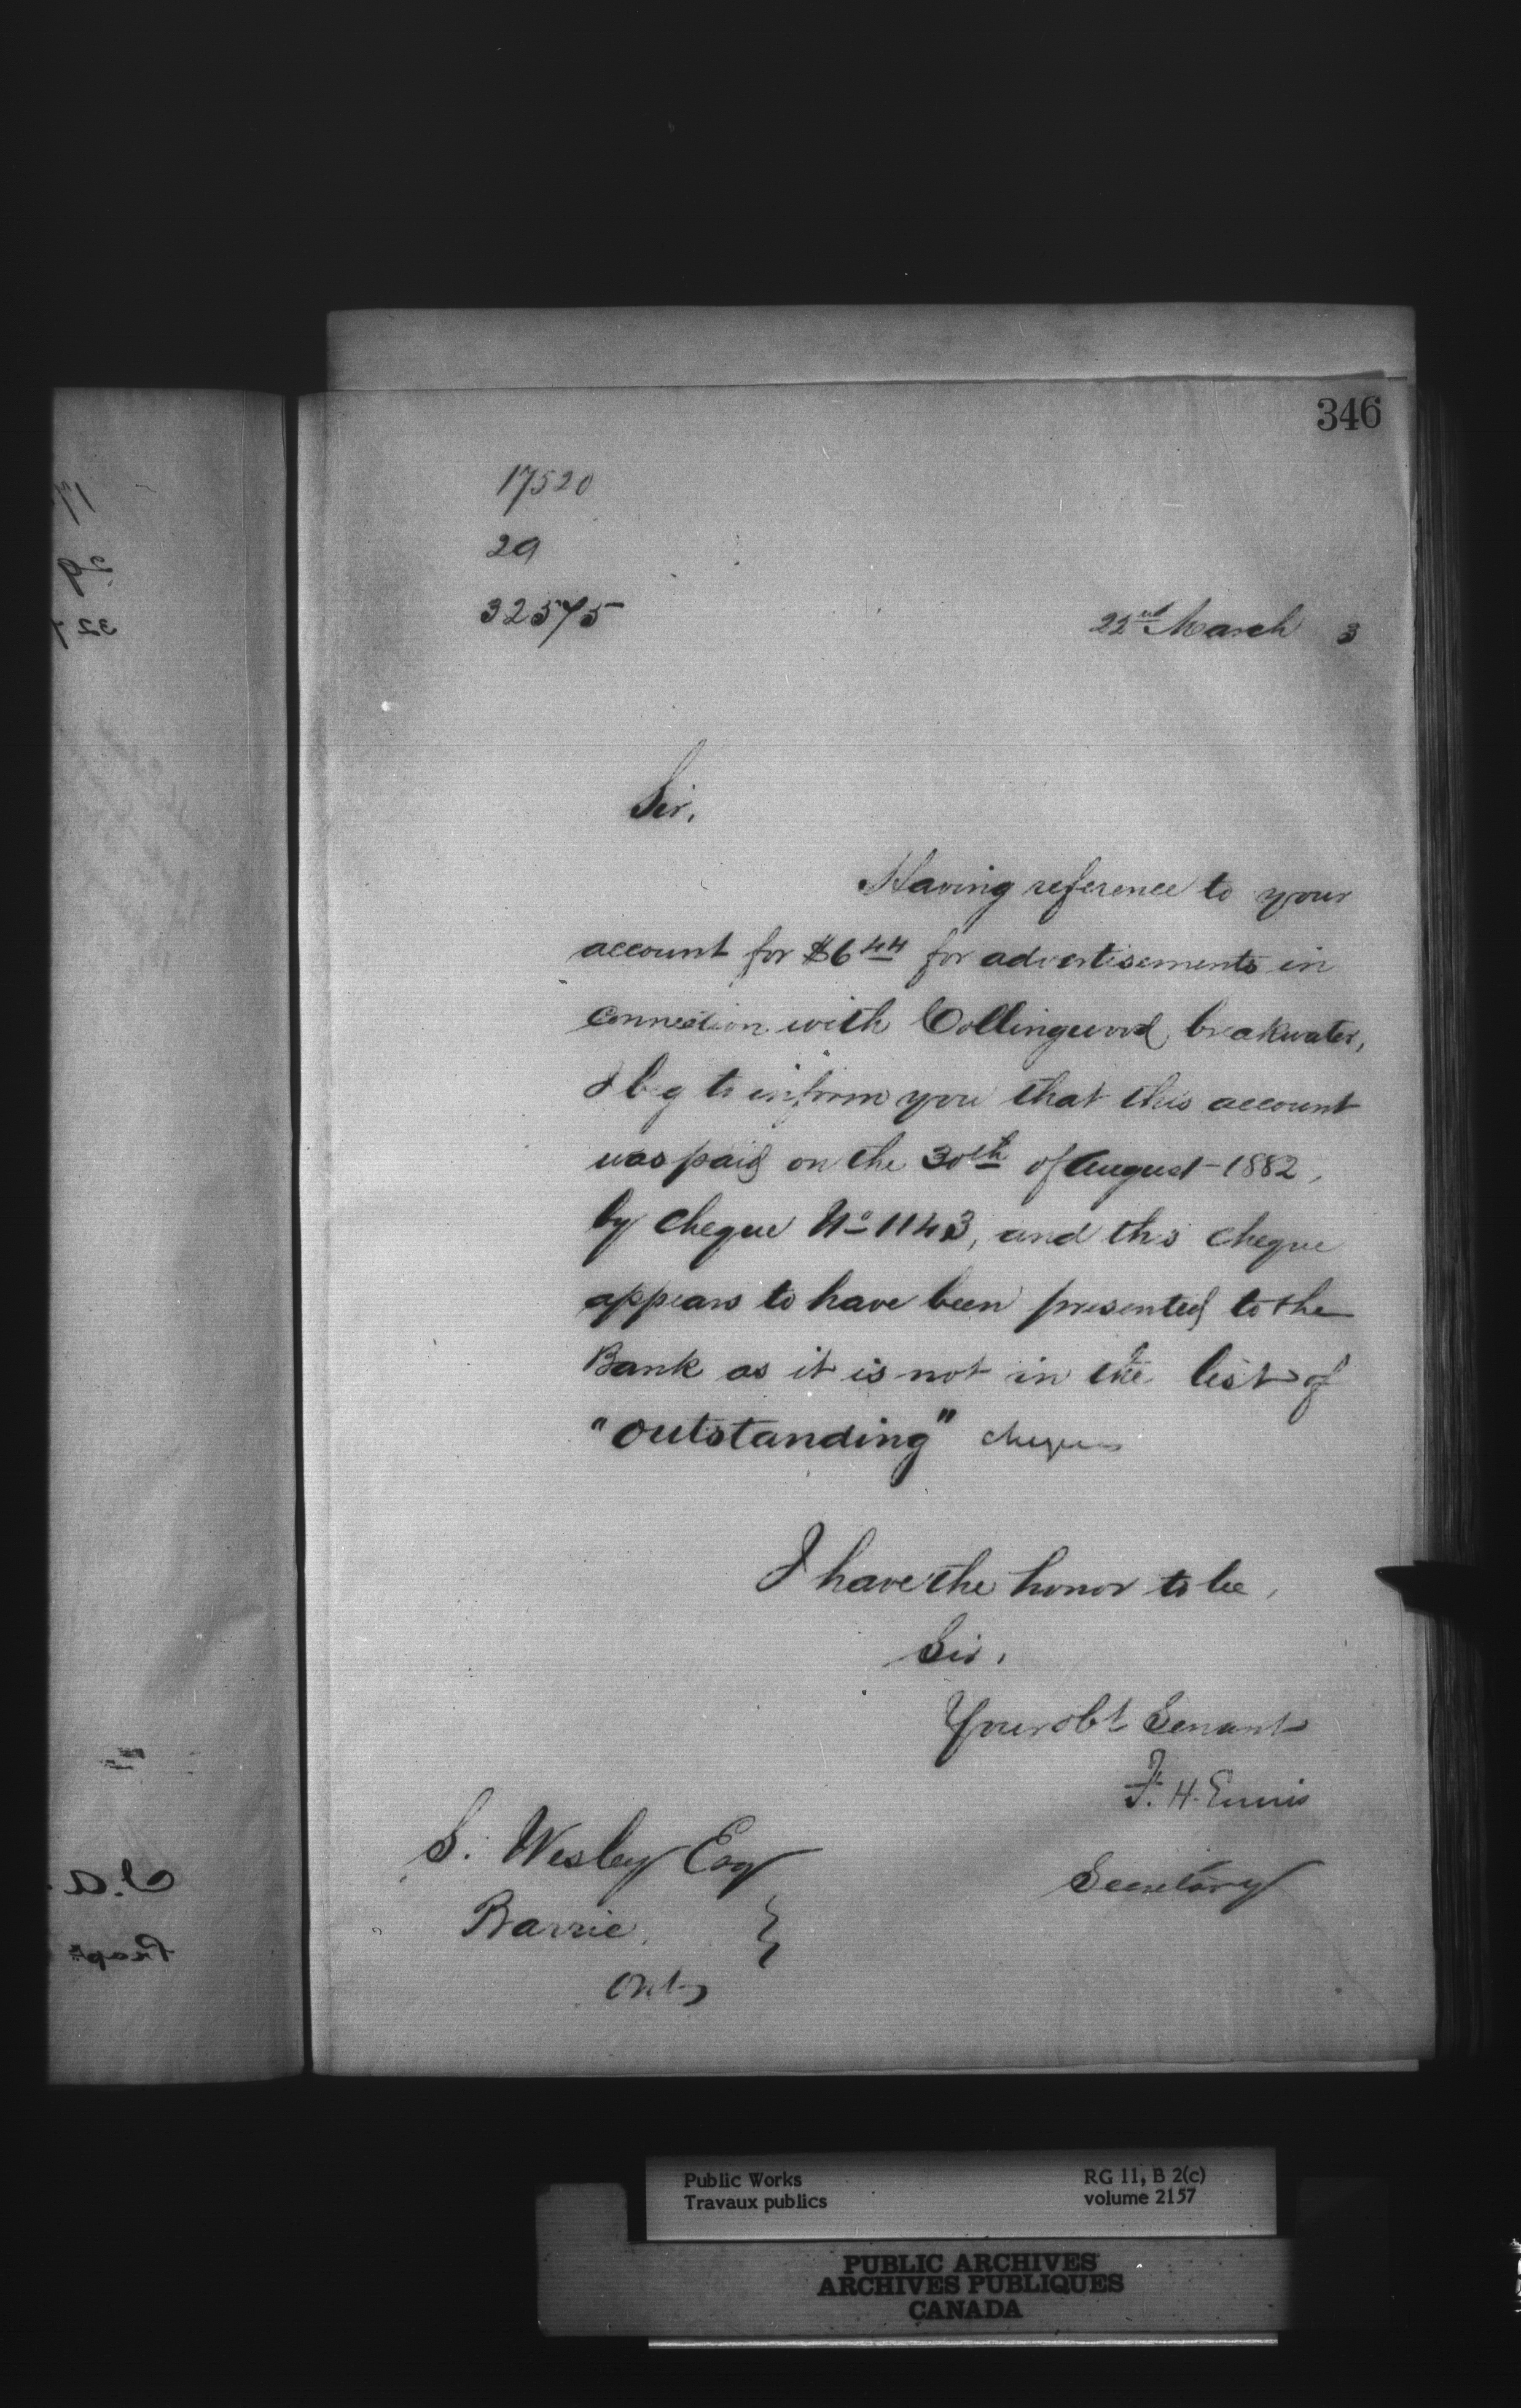 346
17520
29
32575
22nd March 3
Sir,
Having reference to your
account for $6 44 for advertisements in
connection with Collingwood breakwater,
I beg to inform you that this account
was paid on the 30th of August 1882,
by cheque No 1143, and this cheque
appears to have been presented to the
Bank as it is not in the list of
"outstanding" cheques
I have the honor to be,
Sir,
Your obt Servant
F. H. Ennis
Secretary
S. Wesley Esq
Barrie,
Ont
Public Works
Travaux publics
RG 11, B 2(c)
volume 2157
PUBLIC ARCHIVES
ARCHIVES PUBLIQUES
CANADA